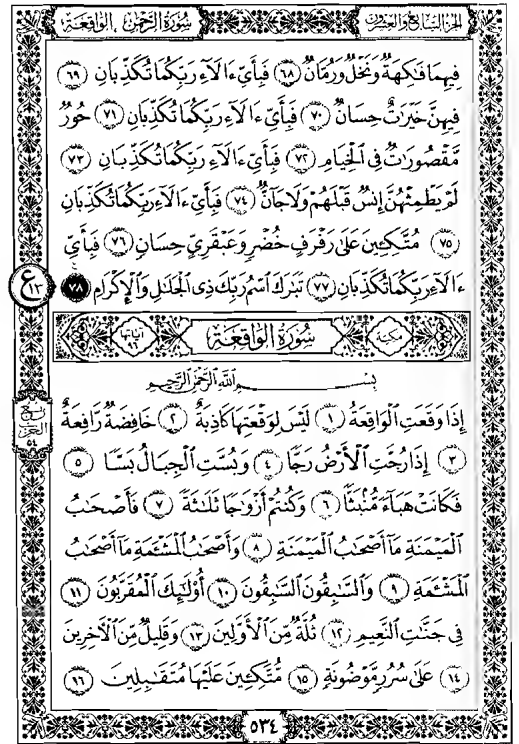 الجزء السابع والعشرون
سورة الرحمن . الواقعة
فِيهِمَا فَٰكِهَةٌ وَنَخْلٌ وَرُمَّانٌ ٦٨ فَبِأَيِّ ءَالَآءِ رَبِّكُمَا تُكَذِّبَانِ ٦٩
فِيهِنَّ خَيْرَٰتٌ حِسَانٌ ٧٠ فَبِأَيِّ ءَالَآءِ رَبِّكُمَا تُكَذِّبَانِ ٧١ حُورٌ
مَّقْصُورَٰتٌ فِي ٱلْخِيَامِ ٧٢ فَبِأَيِّ ءَالَآءِ رَبِّكُمَا تُكَذِّبَانِ ٧٣
لَمْ يَطْمِثْهُنَّ إِنسٌ قَبْلَهُمْ وَلَا جَآنٌّ ٧٤ فَبِأَيِّ ءَالَآءِ رَبِّكُمَا تُكَذِّبَانِ
٧٥ مُتَّكِـِٔينَ عَلَىٰ رَفْرَفٍ خُضْرٍ وَعَبْقَرِيٍّ حِسَانٍ ٧٦ فَبِأَيِّ
ءَالَآءِ رَبِّكُمَا تُكَذِّبَانِ ٧٧ تَبَٰرَكَ ٱسْمُ رَبِّكَ ذِي ٱلْجَلَٰلِ وَٱلْإِكْرَامِ ٧٨
ع ١٣
مكية
سورة الواقعة
آياتها ٩٦
بِسْمِ ٱللَّهِ ٱلرَّحْمَٰنِ ٱلرَّحِيمِ
إِذَا وَقَعَتِ ٱلْوَاقِعَةُ ١ لَيْسَ لِوَقْعَتِهَا كَاذِبَةٌ ٢ خَافِضَةٌ رَّافِعَةٌ
٣ إِذَا رُجَّتِ ٱلْأَرْضُ رَجًّا ٤ وَبُسَّتِ ٱلْجِبَالُ بَسًّا ٥
فَكَانَتْ هَبَآءً مُّنۢبَثًّا ٦ وَكُنتُمْ أَزْوَٰجًا ثَلَٰثَةً ٧ فَأَصْحَٰبُ
ٱلْمَيْمَنَةِ مَآ أَصْحَٰبُ ٱلْمَيْمَنَةِ ٨ وَأَصْحَٰبُ ٱلْمَشْـَٔمَةِ مَآ أَصْحَٰبُ
ٱلْمَشْـَٔمَةِ ٩ وَٱلسَّٰبِقُونَ ٱلسَّٰبِقُونَ ١٠ أُو۟لَٰٓئِكَ ٱلْمُقَرَّبُونَ ١١
فِي جَنَّٰتِ ٱلنَّعِيمِ ١٢ ثُلَّةٌ مِّنَ ٱلْأَوَّلِينَ ١٣ وَقَلِيلٌ مِّنَ ٱلْأٓخِرِينَ
١٤ عَلَىٰ سُرُرٍ مَّوْضُونَةٍ ١٥ مُّتَّكِـِٔينَ عَلَيْهَا مُتَقَٰبِلِينَ ١٦
ربع
الحزب
٥٤
٥٣٤